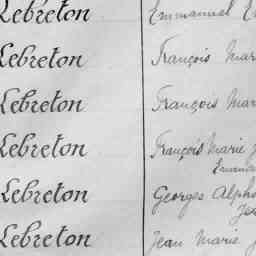 Lebreton Emmanuel
Lebreton François Mar
Lebreton François Mar
Lebreton François Marie J
Emman
Lebreton Georges Alpho
Lebreton Jean Marie J